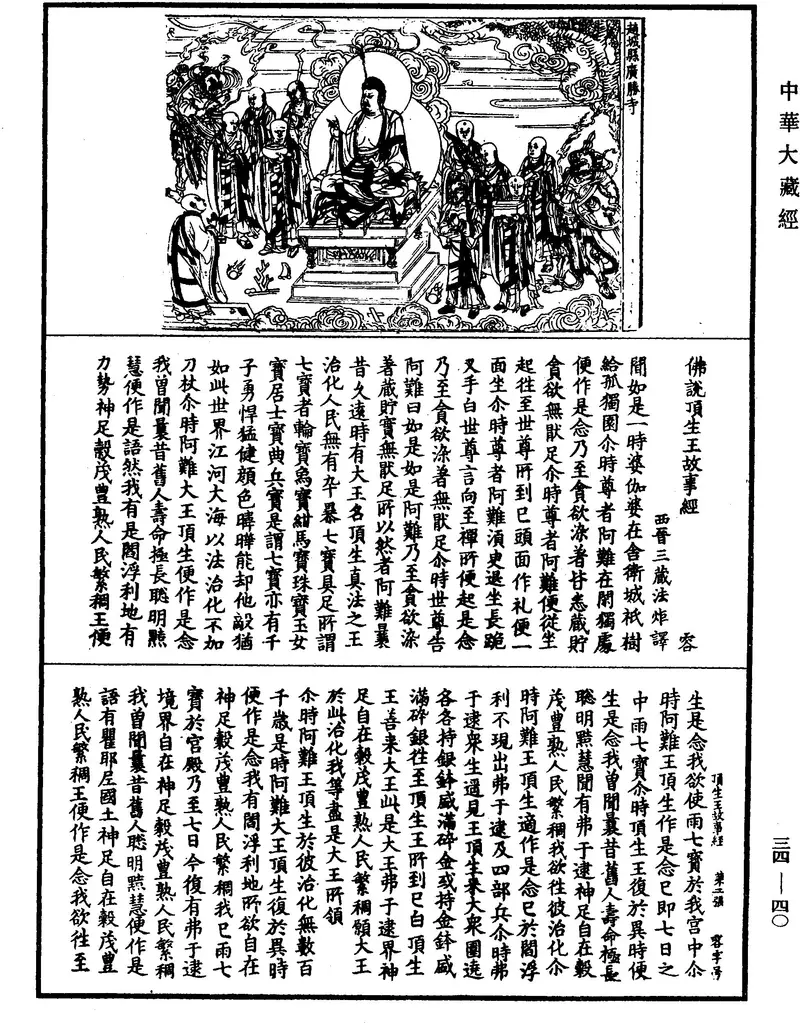 中華大藏經
趙城縣廣勝寺
佛說頂生王故事經
西晉三藏法炬譯 容
聞如是一時婆伽婆在舍衛城祇樹
給孤獨園尒時尊者阿難在閑獨處
便作是念乃至貪欲染著甘悉藏貯
貪欲無猒足尒時尊者阿難便從坐
起往至世尊所到已頭面作礼便一
面坐尒時尊者阿難湏臾退坐長跪
叉手白世尊言向至禪所便起是念
乃至貪欲染著無猒足尒時世尊告
阿難曰如是如是阿難乃至貪欲染
著藏貯寶無猒足所以然者阿難曩
昔久遠時有大王名頂生真法之王
治化人民無有卒暴七寶具足所謂
七寶者輪寶烏寶紺馬寶珠寶玉女
寶居士寶典兵寶是謂七寶亦有千
子勇悍猛健顏色暐曄能却他敵猶
如此世界江河大海以法治化不加
刀杖尒時阿難大王頂生便作是念
我曾聞曩昔舊人壽命極長聡明黠
慧便作是語然我有是閻浮利地有
力勢神足穀茂豊熟人民繁稠王便
生是念我欲使雨七寶於我宮中尒
時阿難王頂生作是念已即七日之
中雨七寶尒時頂生王復於異時便
生是念我曾聞曩昔舊人壽命極長
聡明黠慧聞有弗于逮神足自在穀
茂豊熟人民繁稠我欲往彼治化尒
時阿難王頂生適作是念已於閻浮
利不現出弗于逮及四部兵尒時弗
于逮眾生遥見王頂生來大衆圍遶
各各持銀鉢盛滿碎金或持金鉢盛
滿碎銀往至頂生王所到已白頂生
王善来大王此是大王弗于逮界神
足自在穀茂豊熟人民繁稠願大王
於此治化我等盡是大王所領
尒時阿難王頂生於彼治化無數百
千歲是時阿難大王頂生復於異時
便作是念我有閻浮利地所欲自在
神足穀茂豊熟人民繁稠我已雨七
寶於宮殿乃至七日今復有弗于逮
境界自在神足穀茂豊熟人民繁稠
我曾聞曩昔舊人聡明黠慧便作是
語有瞿耶尼國土神足自在穀茂豊
熟人民繁稠王便作是念我欲往至
頂生王故事經 第二張 容字号
三四—四〇